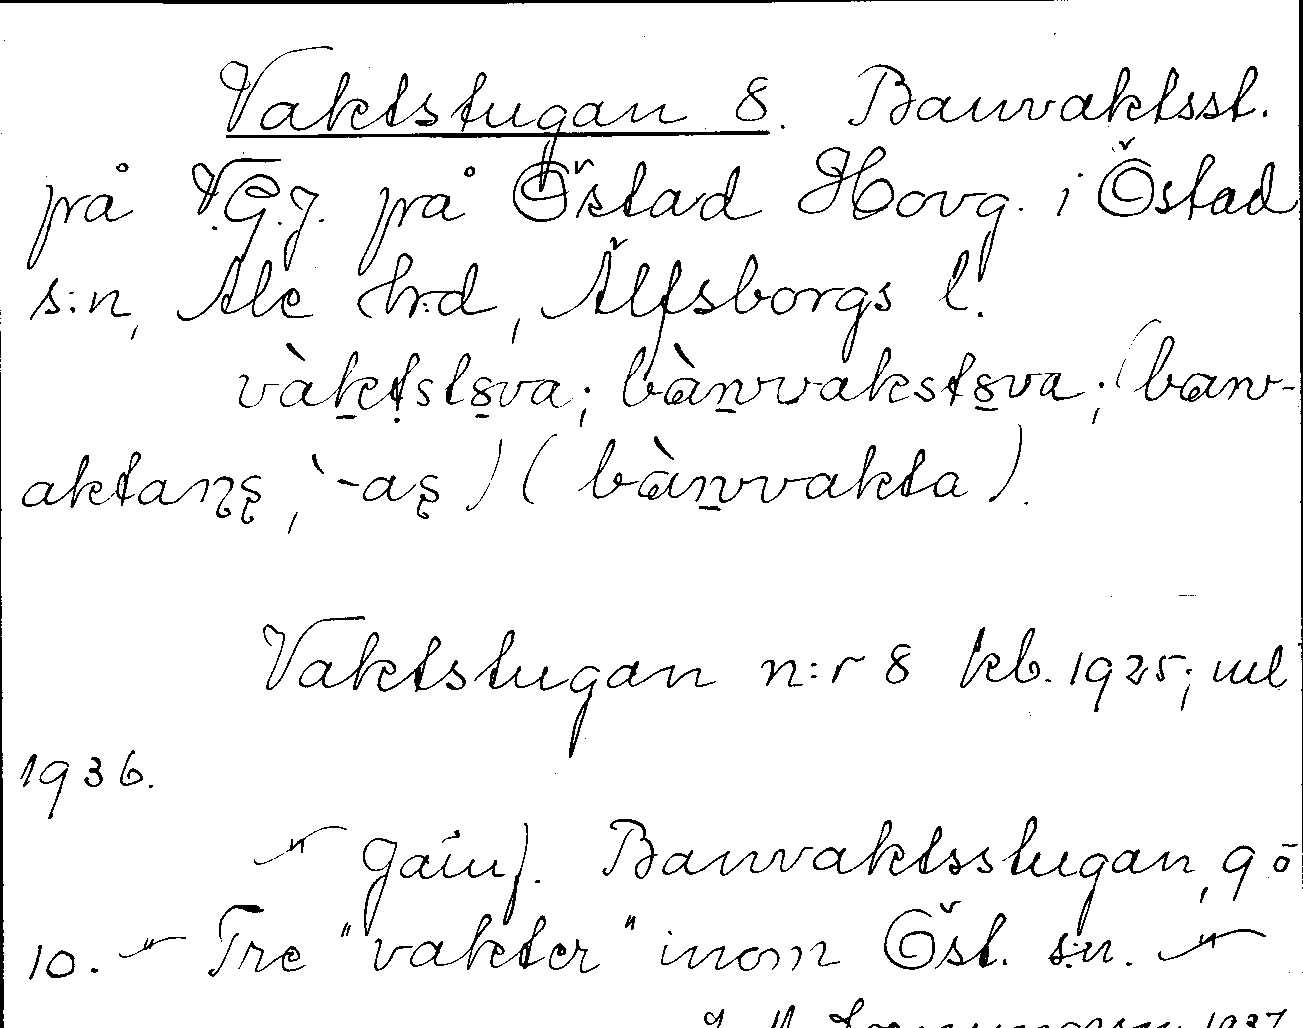 Vaktstugan 8. Banvaktsst.
på V.G.J. på Östad Hovg. i Östad
s:n, Ale h:d, Älfsborgs l.
vàktsts̱va; bàṉvvaksts̱va; (banv-
aktanȩ, `-aş) (bàṉvvakta).
Vaktstugan n:r 8 kb. 1925; ml
1936.
-"- Jämf. Banvaktsstugan, 9 o
10. -"- Tre "vakter" inom Öst. s:n. -"-
1937